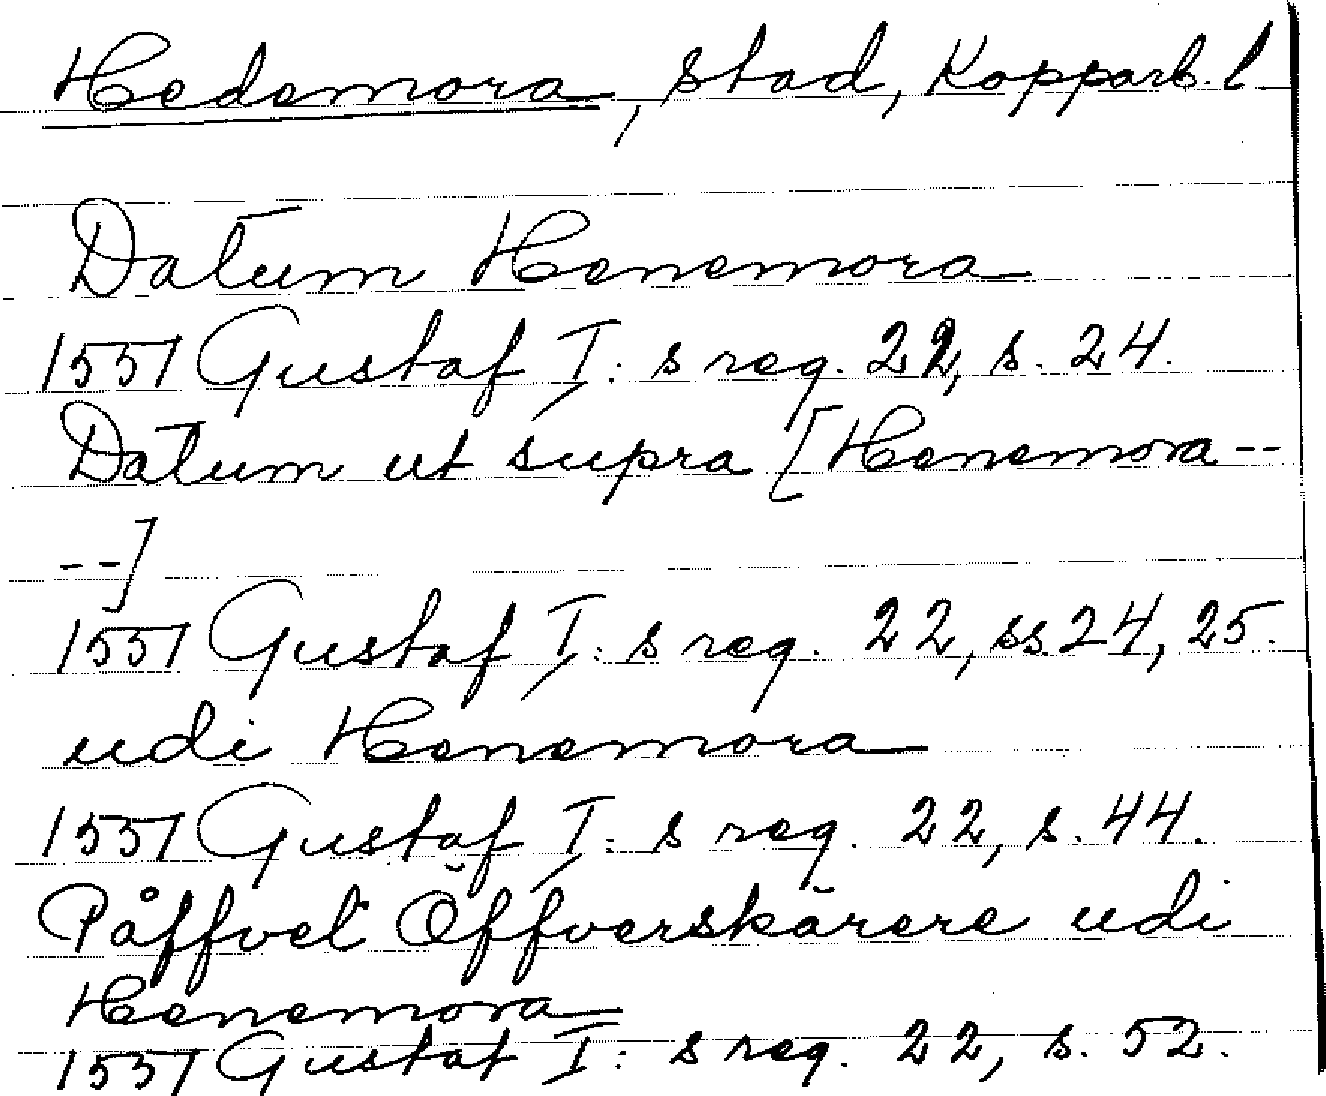 Hedemora, stad, Kopparb. l
Datum Henemora
1551 Gustaf I: s reg. 22, s. 24.
Datum ut supra [Henemora --
--]
1551 Gustaf I: s reg. 22, ss 24, 25.
udi Henemora
1551 Gustaf I: s reg. 22, s. 44.
Påffvel Öffverskärere udi
Henemora
1551 Gustaf I: s reg. 22, s. 52.